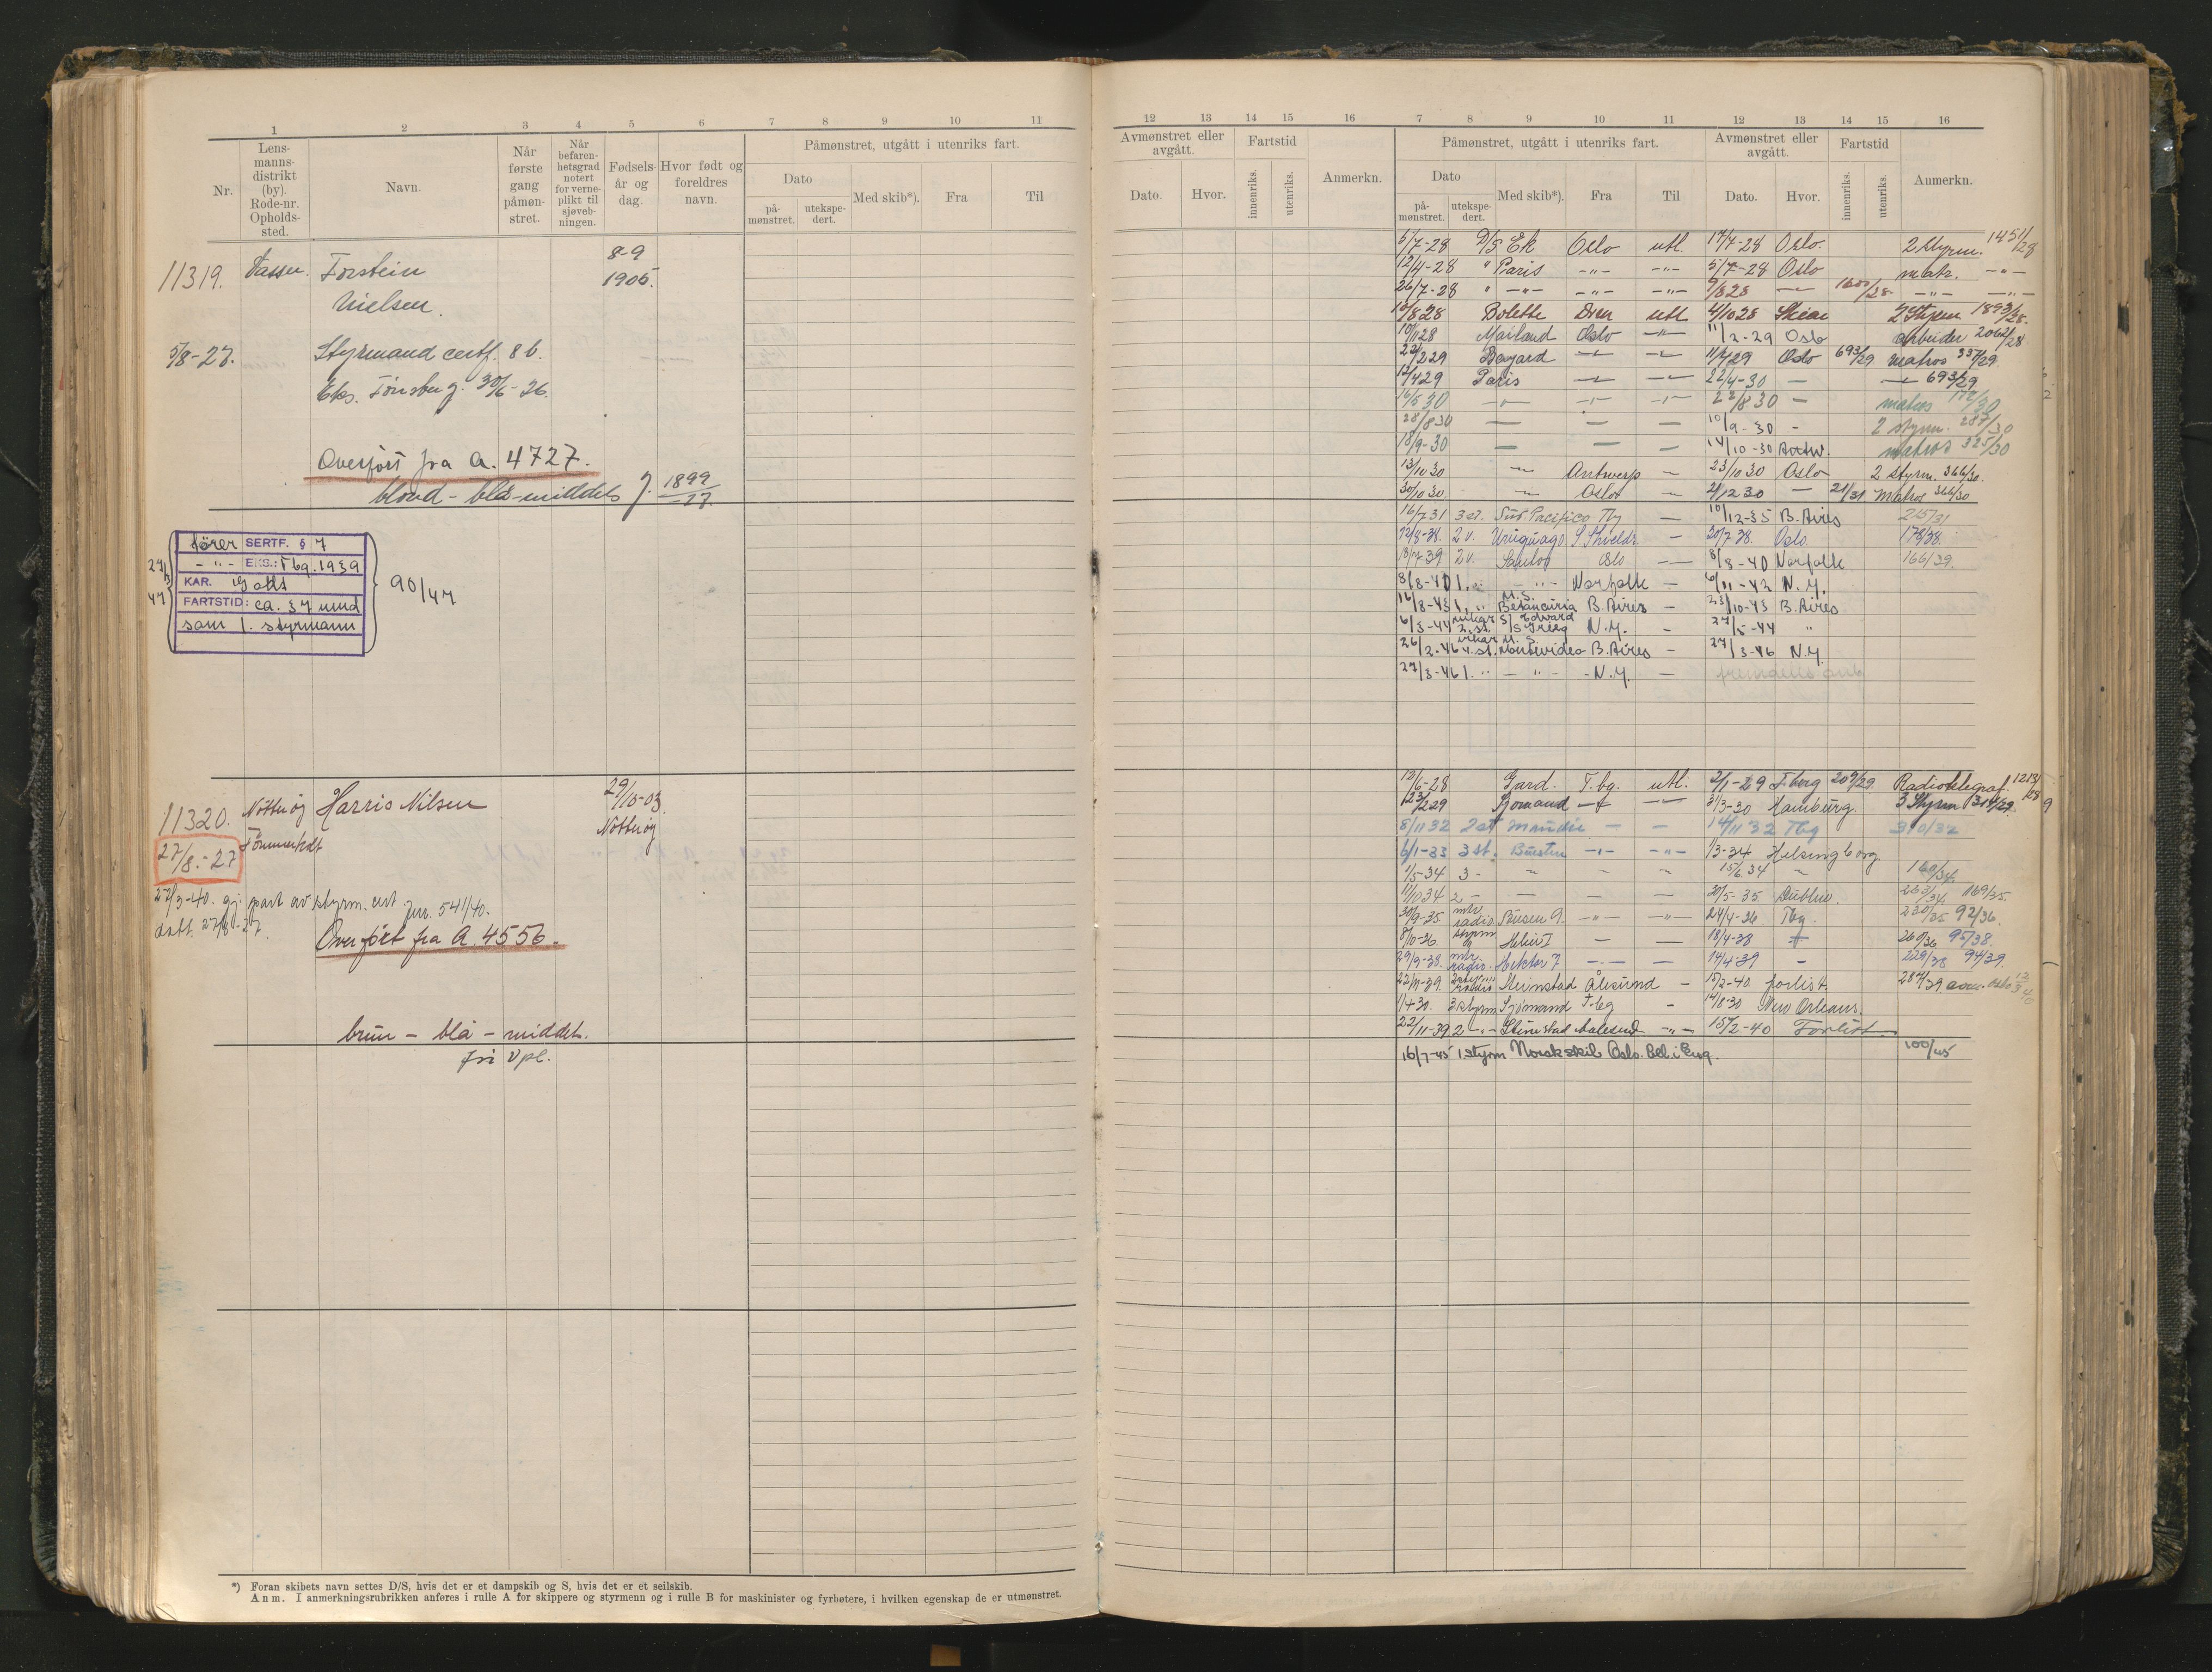 1 2 3 4 5 6 7 8 9 10 11
Nr.
Lens-
manns-
distrikt
(by).
Rode-nr.
Opholds-
sted.
Navn.
Når
første
gang
påmøn-
stret.
Når
befaren-
hetsgrad
notert
for verne-
plikt til
sjøveb-
ningen.
Fødsels-
år og
dag.
Hvor født og
foreldres
navn.
Påmønstret, utgått i utenriks fart.
Dato
på-
mønstret.
utekspe-
dert.
Med skib*).
Fra
Til
11319. Torstein 8-9
1905.
Nielsen.
5/8-27. Styrmand certf. 8 b.
Eks. Tönsberg. 30/6-26.
Overfört fra A. 4727.
blond - blå - middels J. 1899/27.
förer SERTF. § 7
- " - EKS.: Tbg. 1939
KAR. Godt
FARTSTID: ca. 37 mnd
som 1. styrmann
90/47
11320. Nötteröy Harris Nilsen 29/10-03
Nötteröy
27/8.-27
27/3-40. gj. part av styrm. cert. Jnr. 541/40.
datt. 27/8-27.
Overfört fra A. 4556.
brun - blå - middels.
fri Vpl.
*) Foran skibets navn settes D/S, hvis det er et dampskib og S, hvis det er et seilskib.
Anm. I anmerkningsrubrikken anføres i rulle A for skippere og styrmenn og i rulle B for maskinister og fyrbøtere, i hvilken egenskap de er utmønstret.
12 13 14 15 16 7 8 9 10 11 12 13 14 15 16
Avmønstret eller
avgått.
Dato.
Hvor.
Fartstid
innenriks.
utenriks.
Anmerkn.
Påmønstret, utgått i utenriks fart.
Dato
på-
mønstret.
utekspe-
dert.
Med skib*).
Fra
Til
Avmønstret eller
avgått.
Dato.
Hvor.
Fartstid
innenriks.
utenriks.
Anmerkn.
5/7-28 D/S Ek Oslo utl. 17/7-28 Oslo. 2 styrm. 1451/28
12/4-28 " Paris -"- -"- 5/7-28 Oslo matr. -"-
26/7-28 " -"- -"- -"- 9/8 28 1600/28 -"- -"-
10/8 28 Bolette Dren utl 4/10 28 Skien 2 Styrm 1893/28.
10/11 28 Mailand Oslo -"- 11/2-29 Oslo arbeider 2062/28
22/2 29 Bayard 11/4 29 Oslo 693/29 matros 337/29
12/4 29 Paris 22/4-30 693/29
14/5 30 22/8 30 matros 172/30
28/8 30 10/9-30 2 styrm. 287/30
18/9-30 14/10-30 Antw. matros 325/30
13/10 30 Antwerp 23/10 30 Oslo 2 styrm. 366/30.
30/10 30 Oslo 2/12 30 21/31 Matros 366/30
16/7 31 3 st. Sud Pacifico Tbg 10/12-35 B. Aires 215/31
12/8-38. 2 v. Uruguayo S. Shields 20/7 38. Oslo. 178/38.
18/7-39 2 v. Santos Oslo 8/8-40 Norfolk 166/39.
8/8-40 1. " - " - Norfolk 6/11-42 N.Y.
16/8-43 1. " M.S. Betancuria B. Aires 23/10-43 B. Aires
6/3-44 2. st. S/S Edward Grieg N.Y. 27/5-44 "
26/2-46 v. st. M.S. Montevideo B. Aires - 27/3-46 N.Y.
27/3-46 1. " - " - N.Y.
12/6-28 Gard. T.bg. utl. 2/1-29 T.berg 209/29. Radiotelegraf. 1213/28
Sjomand 31/3-30 Hamburg. 3 Styrm 314/29.
8/11 32 2 st 14/11 32 Tbg 310/32
6/1-33 3 st. Bursten -"- -"- 1/3-34 Helsingborg.
1/5-34 3 - " 15/6 34 " 160/34.
11/10 34 2 - 30/5-35. Dublin. 263/34. 169/35.
30/9-35. mtr radio. -"- -"- 24/4-36. Tbg. 230/35 92/36.
8/10-36. styrm 18/4-38 260/36 95/38.
29/9-38. mtr. radio. Hektor 7 14/4-39 229/38 94/39.
22/11-39. 2 styrm radio Steinstad Ålesund - 15/2-40. forlist 287/39
1/4 30. 3 styrm Sjömand T.bg - 14/8-30 New Orleans.
22/11-39 2 -"- Steinstad Aalesund -"- 15/2-40 Forlist
16/7-45 1 styrm Norsk skib Oslo. Bel. i Eng. 100/45